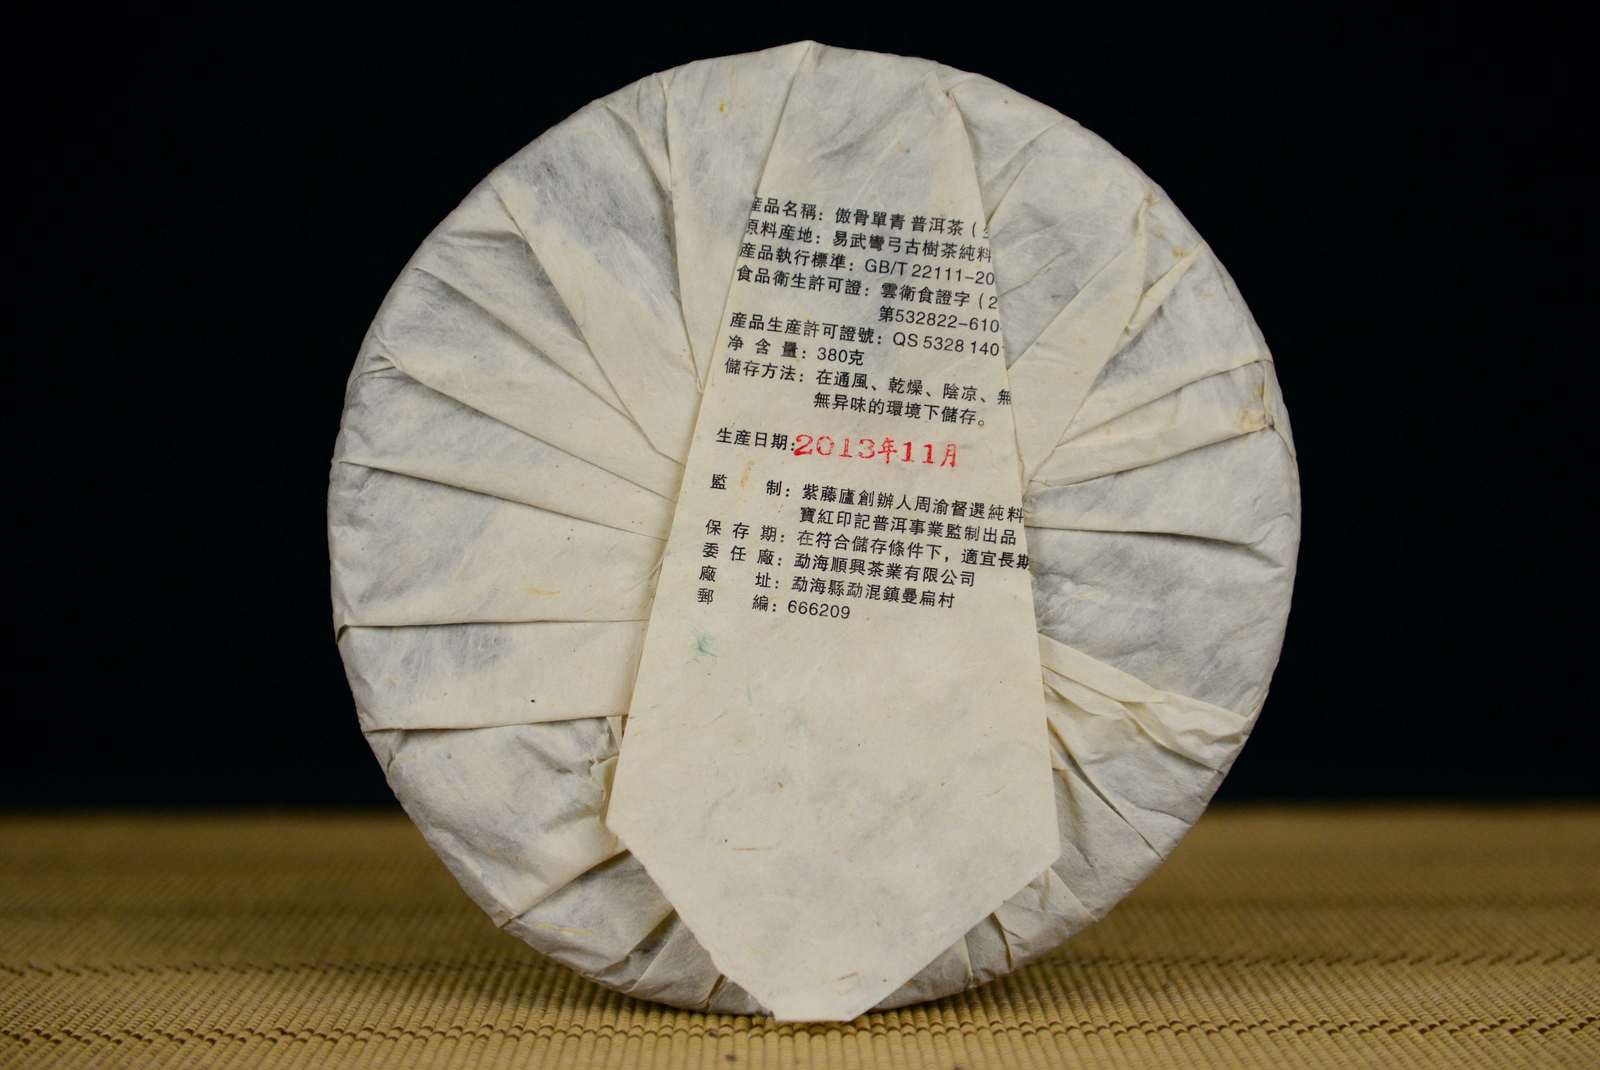 産品名稱：傲骨單青 普洱茶（
原料産地：易武彎弓古樹茶純料
産品執行標準：GB/T 22111-20
食品衛生許可證：雲衛食證字（2
第532822-610
産品生産許可證號：QS 5328 140
净 含 量：380克
儲存方法：在通風、乾燥、陰凉、無
無异味的環境下儲存。
生産日期:2013年11月
監 制：紫藤廬創辦人周渝督選純料
寶紅印記普洱事業監制出品
保 存 期：在符合儲存條件下，適宜長期
委 任 廠：勐海順興茶業有限公司
廠 址：勐海縣勐混鎮曼扁村
郵 編：666209